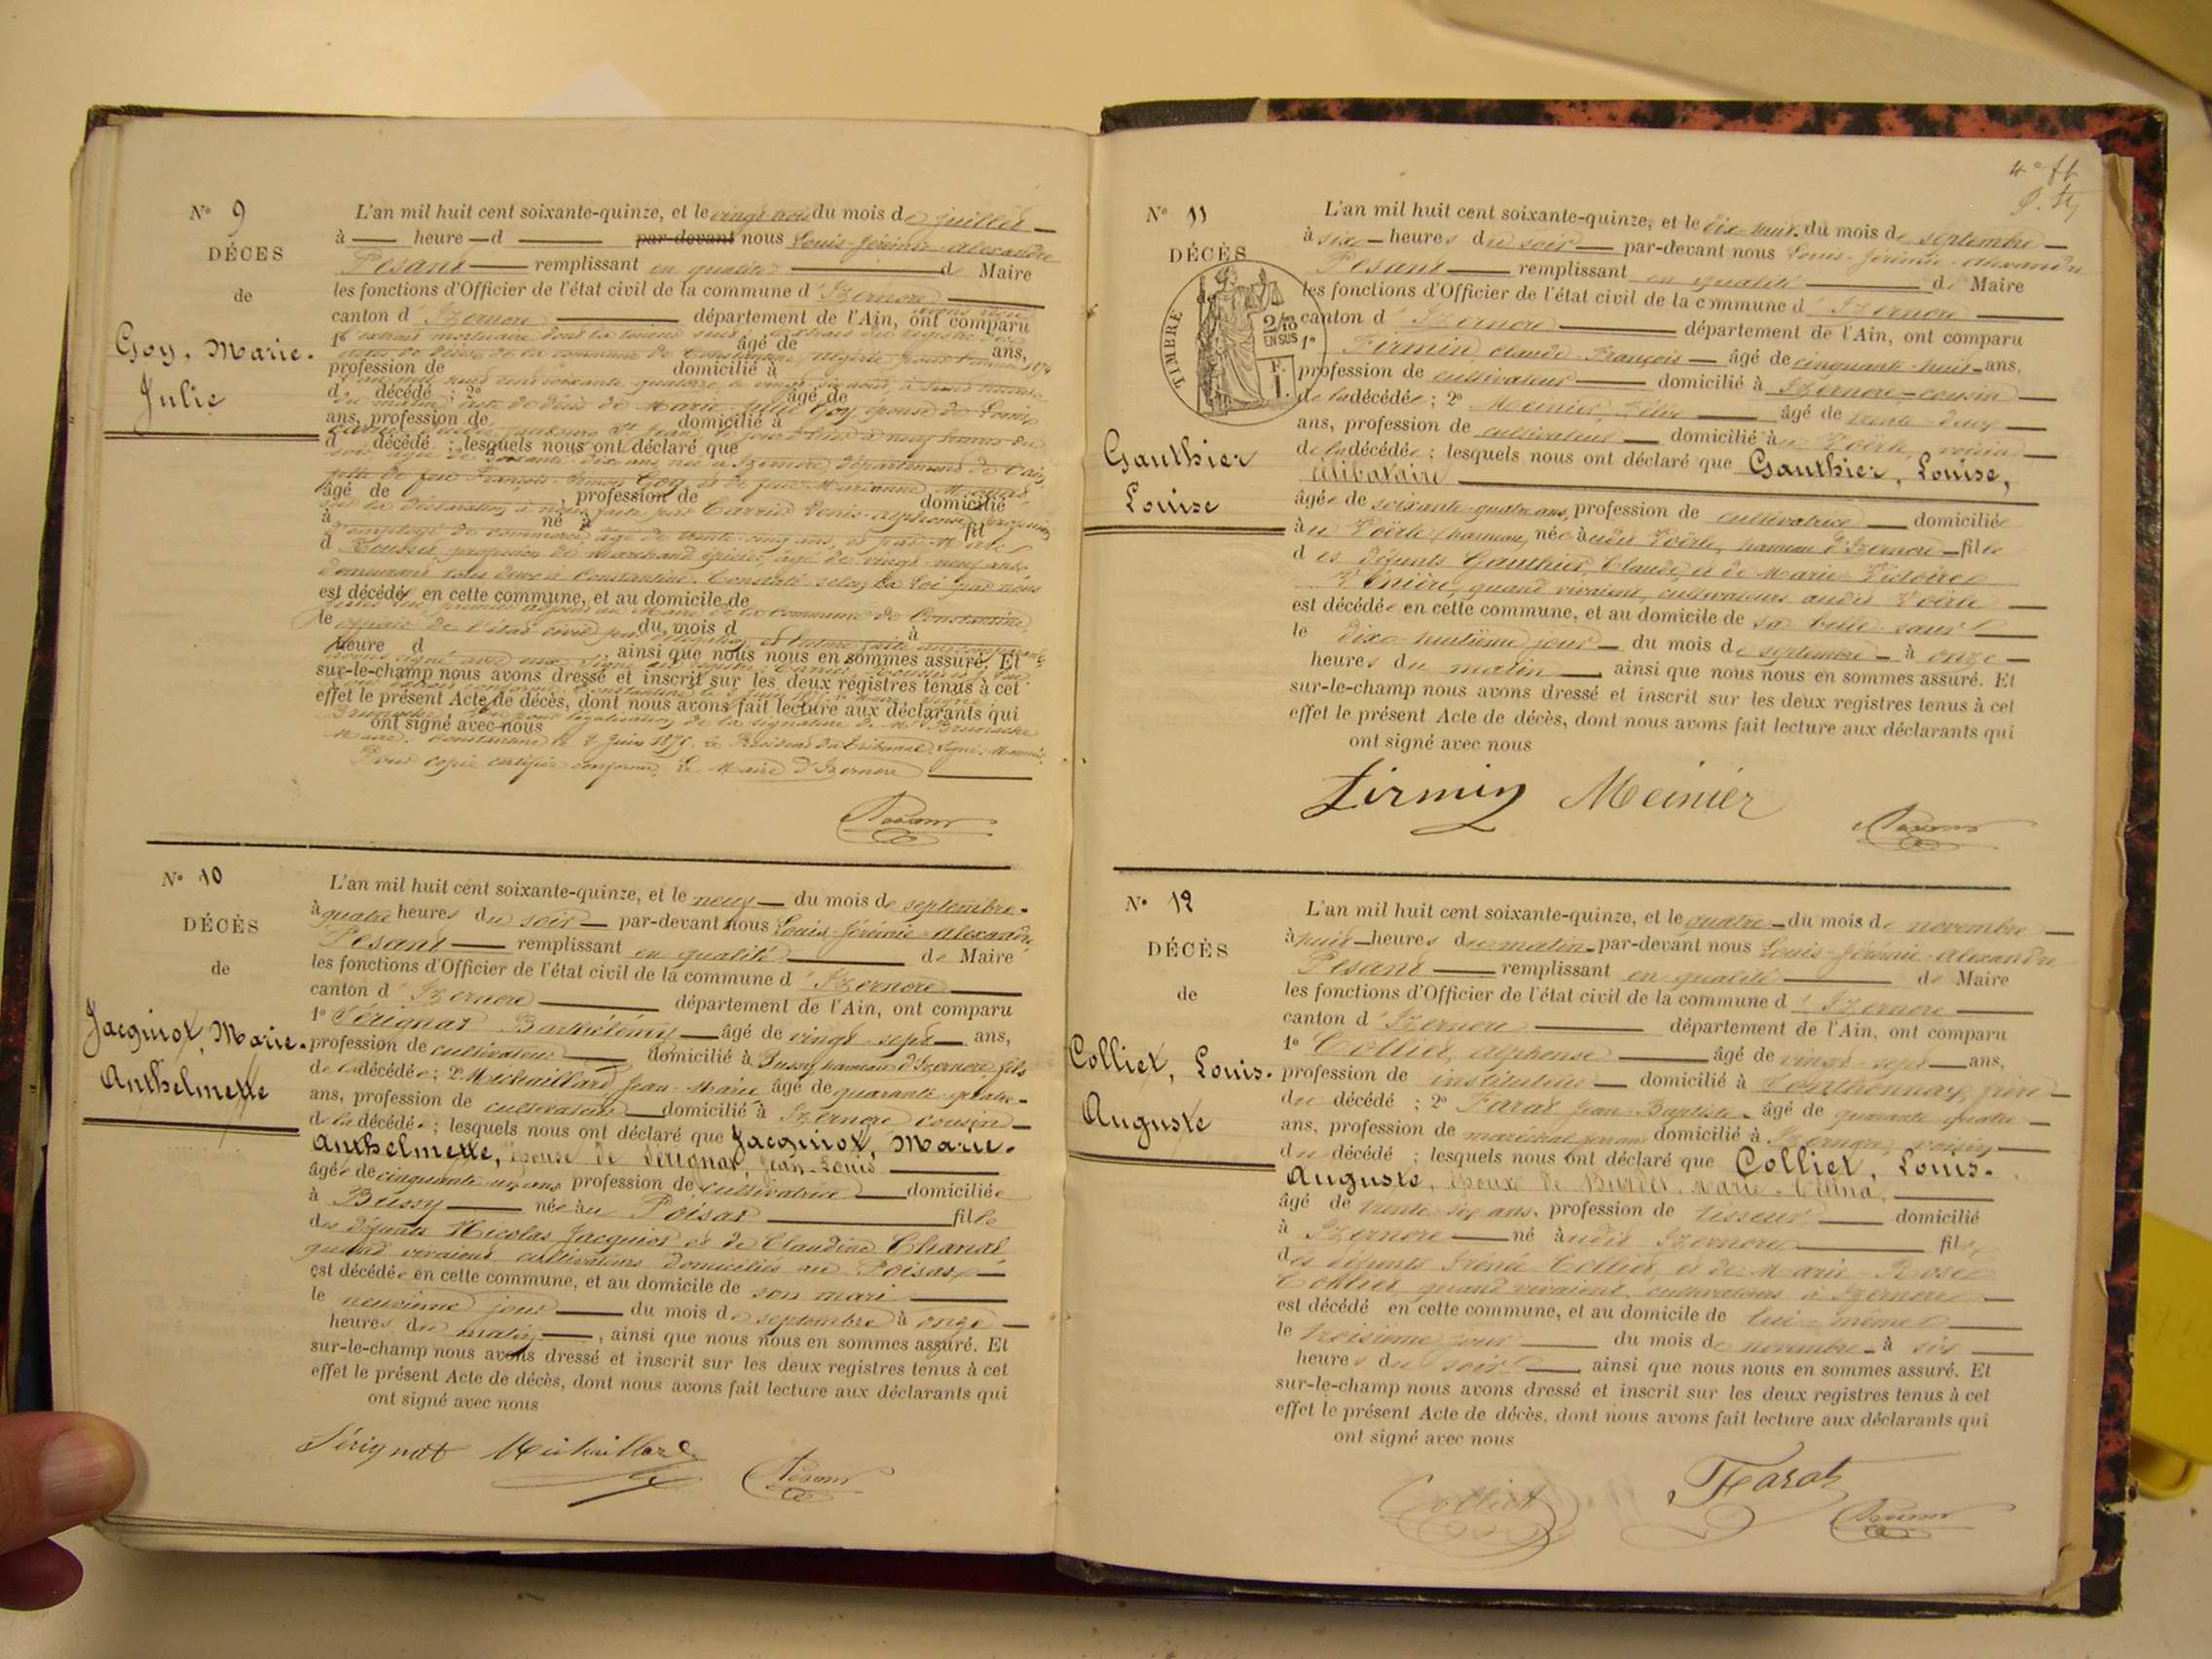 N° 9
DÉCÈS
de
Goy, Marie-
Julie
L'an mil huit cent soixante-quinze, et le vingt trois du mois de juillet
à heure d par-devant nous Louis-Jérémie-Alexandre
Pesant remplissant en qualité de Maire
les fonctions d'Officier de l'état civil de la commune d'Izernore
canton d'Izernore département de l'Ain, ont comparu
1° extrait mortuaire dont la teneur suit: extrait du registre des
âgé de ans,
actes de décès de la commune de Constantine Algérie pour l'année 1874
profession de domicilié à
L'an mil huit cent soixante-quatorze, le vingt-six août, à heures
d décédé ; 2° âgé de
du matin acte de décès de Marie-Julie Goy, épouse de Louis
ans, profession de domicilié à
d décédé ; lesquels nous ont déclaré que
soir âgée de soixante-dix ans, née à Izernore, département de l'Ain,
fille de feu François-Simon Goy, et de feue Marianne
âgé de , profession de domicilié
Sur la déclaration à nous faite par Carrier Louis-Alphonse, profession
à né à fil
d'employé de commerce âgé de trente-cinq ans, et par Marc
d Roussel profession de marchand épicier, âgé de vingt-neuf ans
demeurant tous deux à Constantine. Constaté selon la loi par nous
est décédé en cette commune, et au domicile de
premier adjoint au Maire de la commune de Constantine,
le du mois d à
officier de l'état civil par délégation, et lecture faite
heure d , ainsi que nous nous en sommes assuré. Et
sur-le-champ nous avons dressé et inscrit sur les deux registres tenus à cet
effet le présent Acte de décès, dont nous avons fait lecture aux déclarants qui
pour légalisation de la signature de Mr Brunache
ont signé avec nous
Maire. Constantine le 7 juin 1875. Le Président du Tribunal. Signé:
Pour copie certifiée conforme, Le Maire d'Izernore
Pesant
N° 10
DÉCÈS
de
Jacquiot, Marie-
Anthelmette
L'an mil huit cent soixante-quinze, et le neuf du mois de septembre
à quatre heures du soir par-devant nous Louis-Jérémie-Alexandre
Pesant remplissant en qualité de Maire
les fonctions d'Officier de l'état civil de la commune d'Izernore
canton d'Izernore département de l'Ain, ont comparu
1° Sérignat Barthélémy âgé de vingt-sept ans,
profession de cultivateur domicilié à Bussy hameau d'Izernore fils
de la décédée ; 2° Michaillard Jean-Marie âgé de quarante-quatre
ans, profession de cultivateur domicilié à Izernore cousin
de la décédée ; lesquels nous ont déclaré que Jacquiot, Marie-
Anthelmette, épouse de Sérignat, Jean-Louis
âgée de cinquante-un ans profession de cultivatrice domiciliée
à Bussy née au Poisat fille
des défunts Nicolas Jacquiot et de Claudine Chanal
quand vivaient cultivateurs domiciliés au Poisat
est décédée en cette commune, et au domicile de son mari
le neuvième jour du mois de septembre à onze
heures du matin , ainsi que nous nous en sommes assuré. Et
sur-le-champ nous avons dressé et inscrit sur les deux registres tenus à cet
effet le présent Acte de décès, dont nous avons fait lecture aux déclarants qui
ont signé avec nous
Sérignat Michaillard Pesant
4e ft
N° 11
DÉCÈS
TIMBRE
2/10
EN SUS
F.
1.
Gauthier
Louise
L'an mil huit cent soixante-quinze, et le dix-huit du mois de septembre
à six heures du soir par-devant nous Louis-Jérémie-Alexandre
Pesant remplissant en qualité de Maire
les fonctions d'Officier de l'état civil de la commune d'Izernore
canton d'Izernore département de l'Ain, ont comparu
1° Firmin, Claude-François âgé de cinquante-huit ans,
profession de cultivateur domicilié à Izernore cousin
de la décédée ; 2° Meinier, Félix âgé de trente-deux
ans, profession de cultivateur domicilié au Voërle, voisin
de la décédée ; lesquels nous ont déclaré que Gauthier, Louise,
célibataire
âgée de soixante-quatre ans, profession de cultivatrice domiciliée
au Voërle (hameau) née audit Voërle, hameau d'Izernore fille
des défunts Gauthier, Claude, et de Marie-Victoire
quand vivaient, cultivateurs audit Voërle
est décédée en cette commune, et au domicile de sa belle-sœur
le dixe-huitième jour du mois de septembre à onze
heures du matin ainsi que nous nous en sommes assuré. Et
sur-le-champ nous avons dressé et inscrit sur les deux registres tenus à cet
effet le présent Acte de décès, dont nous avons fait lecture aux déclarants qui
ont signé avec nous
Firmin Meinier Pesant
N° 12
DÉCÈS
de
Colliet, Louis-
Auguste
L'an mil huit cent soixante-quinze, et le quatre du mois de novembre
à huit heures du matin par-devant nous Louis-Jérémie-Alexandre
Pesant remplissant en qualité de Maire
les fonctions d'Officier de l'état civil de la commune d'Izernore
canton d'Izernore département de l'Ain, ont comparu
1° Colliet, Alphonse âgé de vingt-sept ans,
profession de instituteur domicilié à Confhonnax, frère
du décédé ; 2° Farat Jean-Baptiste âgé de quarante-quatre
ans, profession de maréchal ferrant domicilié à Izernore, voisin
du décédé ; lesquels nous ont déclaré que Colliet, Louis-
Auguste, époux de Burdet, Marie-Célina,
âgé de trente-six ans, profession de tisseur domicilié
à Izernore né audit Izernore fils
des défunts Irénée Colliet, et de Marie-Rose
Colliet, quand vivaient, cultivateurs à Izernore
est décédé en cette commune, et au domicile de lui-même
le troisième jour du mois de novembre à six
heures du soir ainsi que nous nous en sommes assuré. Et
sur-le-champ nous avons dressé et inscrit sur les deux registres tenus à cet
effet le présent Acte de décès, dont nous avons fait lecture aux déclarants qui
ont signé avec nous
Colliet Farat Pesant